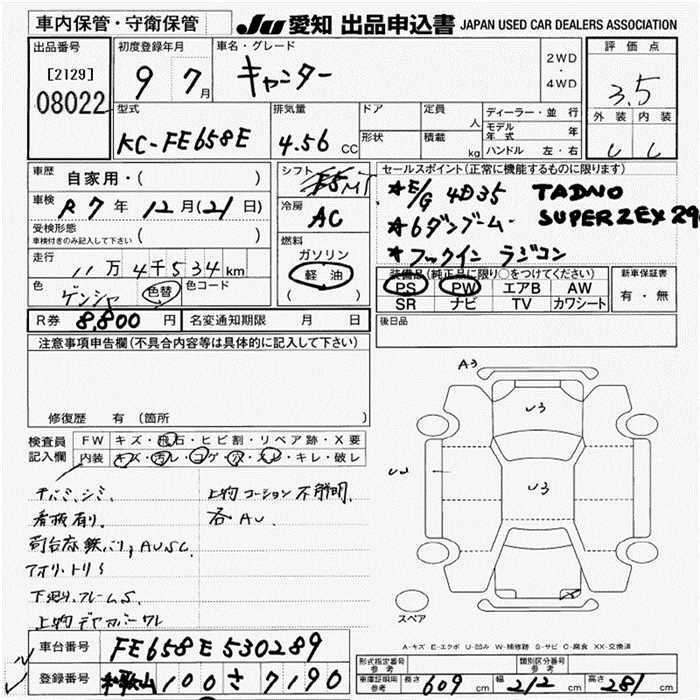 車内保管・守衛保管
JU 愛知 出品申込書 JAPAN USED CAR DEALERS ASSOCIATION
出品番号
[2129]
08022
初度登録年月
9 7月
車名・グレード
キャンター
2WD
・
4WD
評価点
3.5
外装 内装
型式
KC-FE658E
排気量
4.56 CC
ドア
形状
定員 人
積載 kg
ディーラー・並行
モデル年式 年
ハンドル 左・右
車歴 自家用・( )
車検 R7年 12月(21日)
受検形態
車検付きのみ記入して下さい ( )
走行 11万4千534km
色 ゲンシャ 色替 色コード
シフト F5MT
冷房 AC
燃料
ガソリン
軽油
( )
セールスポイント(正常に機能するものに限ります)
★E/G 4D35 TADNO
★6ダンブーム SUPERZEX 29
★フックイン ラジコン
装備品(純正品に限り○をつけてください)
PS PW エアB AW
SR ナビ TV カワシート
新車保証書
有・無
R券 8,800円 名変通知期限 月 日
後日品
注意事項申告欄(不具合内容等は具体的に記入して下さい)
修復歴 有(箇所 )
検査員記入欄
FW キズ・飛石・ヒビ割・リペア跡・X要
内装 キズ・汚レ・コゲ・穴・スレ・キレ・破レ
シミ、
看板有り、
荷台床鉄バリ、AUSC.
下廻り、フレームS.
上物コーション不鮮明.
各AU.
A3
U3
U3
スペア
A-キズ E-エクボ U-凹み W-補修跡 S-サビ C-腐食 XX-交換済
車台番号 FE658E530289
登録番号 和歌山 100 さ 7190
形式指定番号
参考
類別区分番号
参考
車庫証明用
参考
長さ 609 cm 幅 212 cm 高さ 281 cm